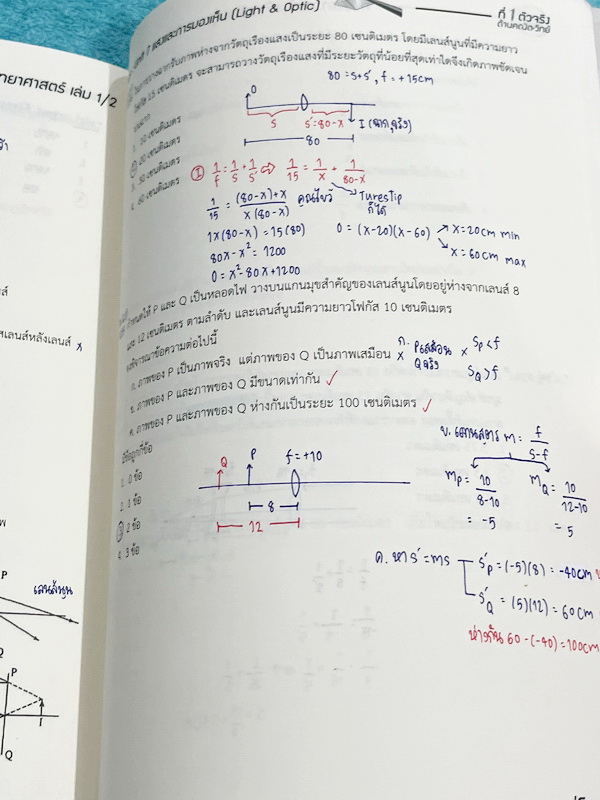 แสงและการมองเห็น (Light & Optic)
ที่ 1 ตัวจริง
ด้านคณิต-วิทย์
ทยาศาสตร์ เล่ม 1/2
ในการวางฉากรับภาพห่างจากวัตถุเรืองแสงเป็นระยะ 80 เซนติเมตร โดยมีเลนส์นูนที่มีความยาว
โฟกัส 15 เซนติเมตร จะสามารถวางวัตถุเรืองแสงที่มีระยะวัตถุที่น้อยที่สุดเท่าใดจึงเกิดภาพชัดเจน
บนฉาก
80 = s+s', f = +15cm
1. 10 เซนติเมตร
2. 20 เซนติเมตร
3. 30 เซนติเมตร
4. 60 เซนติเมตร
O
S
S'=80-x
I (ฉาก,จริง)
80
① 1/f = 1/s + 1/s' ⇒ 1/15 = 1/x + 1/80-x
1/15 = (80-x)+x / x(80-x) คูณไขว้
1x(80-x) = 15(80)
80x-x² = 1200
0 = x²-80x+1200
0 = (x-20)(x-60)
x=20cm min
x=60cm max
กำหนดให้ P และ Q เป็นหลอดไฟ วางบนแกนมุขสำคัญของเลนส์นูนโดยอยู่ห่างจากเลนส์ 8
และ 12 เซนติเมตร ตามลำดับ และเลนส์นูนมีความยาวโฟกัส 10 เซนติเมตร
พิจารณาข้อความต่อไปนี้
ก. ภาพของ P เป็นภาพจริง แต่ภาพของ Q เป็นภาพเสมือน x
ข. ภาพของ P และภาพของ Q มีขนาดเท่ากัน ✓
ค. ภาพของ P และภาพของ Q ห่างกันเป็นระยะ 100 เซนติเมตร ✓
ก. Pเสมือน x Sp<f
Qจริง SQ>f
มีข้อถูกกี่ข้อ
1. 0 ข้อ
2. 1 ข้อ
3. 2 ข้อ
4. 3 ข้อ
Q
P
f=+10
8
12
ข. แทนสูตร m = f/s-f
mp = 10/8-10
= -5
mQ = 10/12-10
= 5
ค. หา s' = ms
s'P = (-5)(8) = -40cm
s'Q = (5)(12) = 60cm
ห่างกัน 60-(-40) = 100cm
สเลนส์หลังเลนส์ x
P
เลนส์นูน
Q
P
I
Q